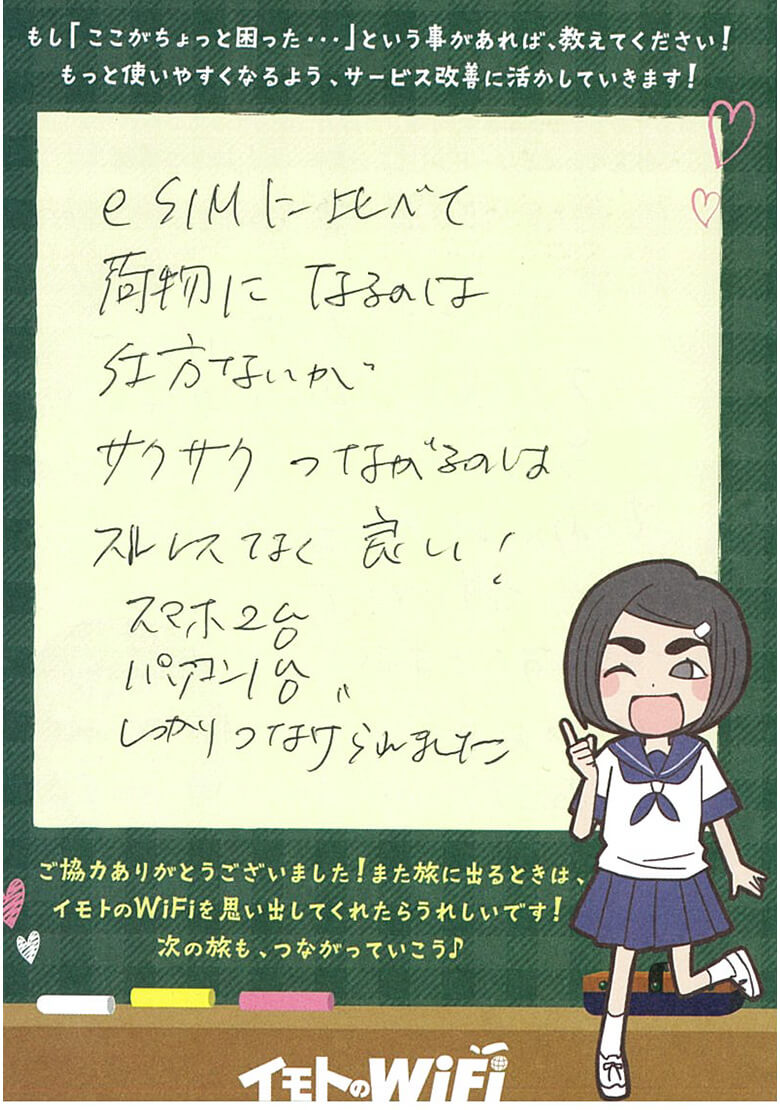 もし「ここがちょっと困った・・・」という事があれば、教えてください!
もっと使いやすくなるよう、サービス改善に活かしていきます!
e SIMに比べて
荷物に なるのは
仕方ないが
サクサク つながるのは
ストレスなく 良い!
スマホ2台
パソコン1台
しっかりつなげられました
ご協力ありがとうございました!また旅に出るときは、
イモトのWiFiを思い出してくれたらうれしいです!
次の旅も、つながっていこう♪
イモトのWiFi